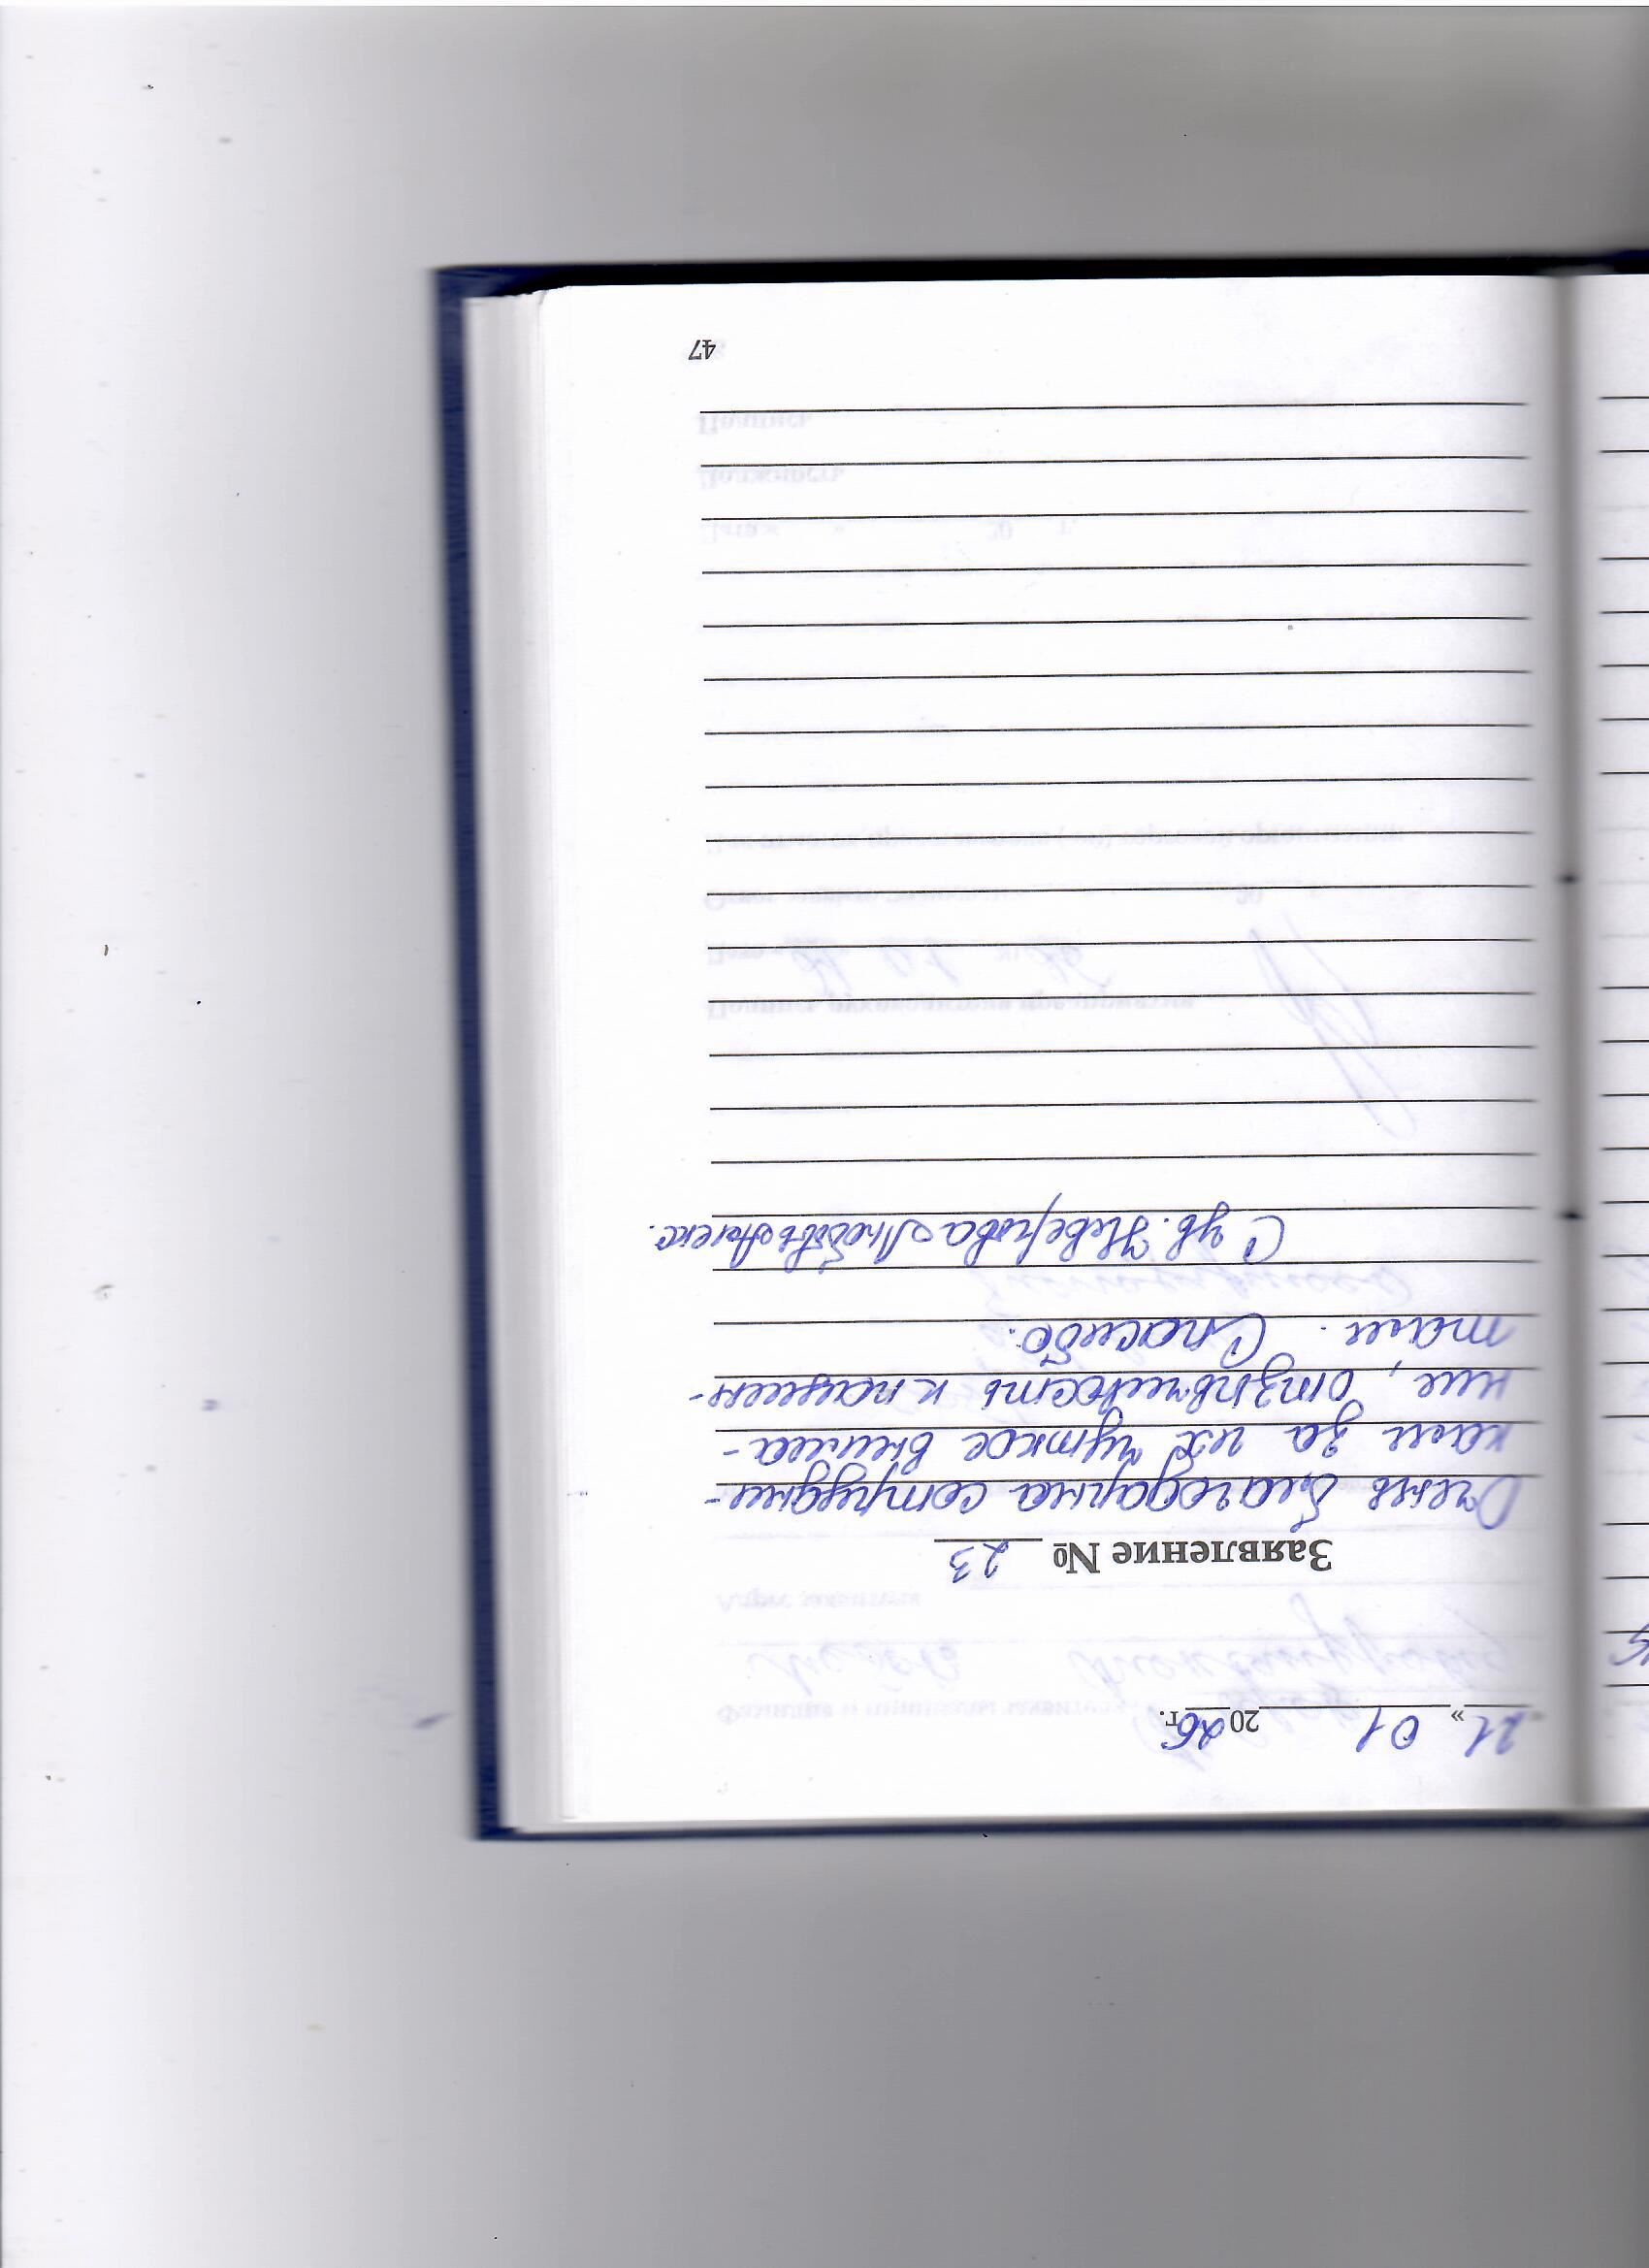 «21» 01 2026 г.
Заявление № 23
Очень благодарна сотрудни-
кам за их чуткое внима-
ние, отзывчивость к пациен-
там. Спасибо.
С ув. Неверова Любовь Алекс.
47